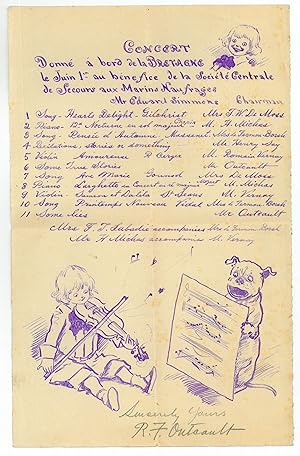 Concert
Donné à bord de la BRETAGNE
le Juin 1er au bénéfice de la Société Centrale
de Secours aux Marins Naufragés
Mr Edward Simmons Chairman
1 Song - Hearts Delight - Gilchrist Mrs F. H. De Moss
2 Piano - Nocturne in sol majeur Chopin M. H. Michas
3 Song - Pensée d'Automne Massenet Mrs
4 Recitations, stories or something Mr Henry Gay
5 Violin Amoureuse R. Berger M. Romain Verney
6 Some True Stories Mr Outcault
7 Song Ave Maria Gounod Mrs De Moss
8 Piano Larghetto M. Michas
9 Violin St Saens M. Verney
10 Song Printemps Nouveau Vidal Mrs
11 Some lies Mr Outcault
Mrs F. J. Labadie accompanies Mrs
Mr H. Michas accompanies M. Verney
Sincerely Yours
R. F. Outcault